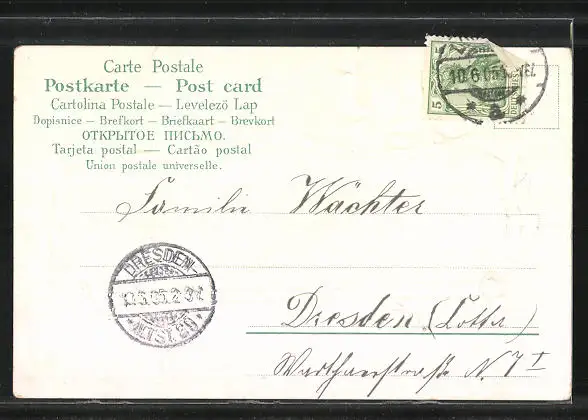 Carte Postale
Postkarte — Post card
Cartolina Postale — Levelező Lap
Dopisnice — Brefkort — Briefkaart — Brevkort
ОТКРЫТОЕ ПИСЬМО.
Tarjeta postal — Cartão postal
Union postale universelle.
5
10.6.05
* a *
Familie Wächter
DRESDEN-
ALTST.
Dresden (Lotta)
N. 7 I